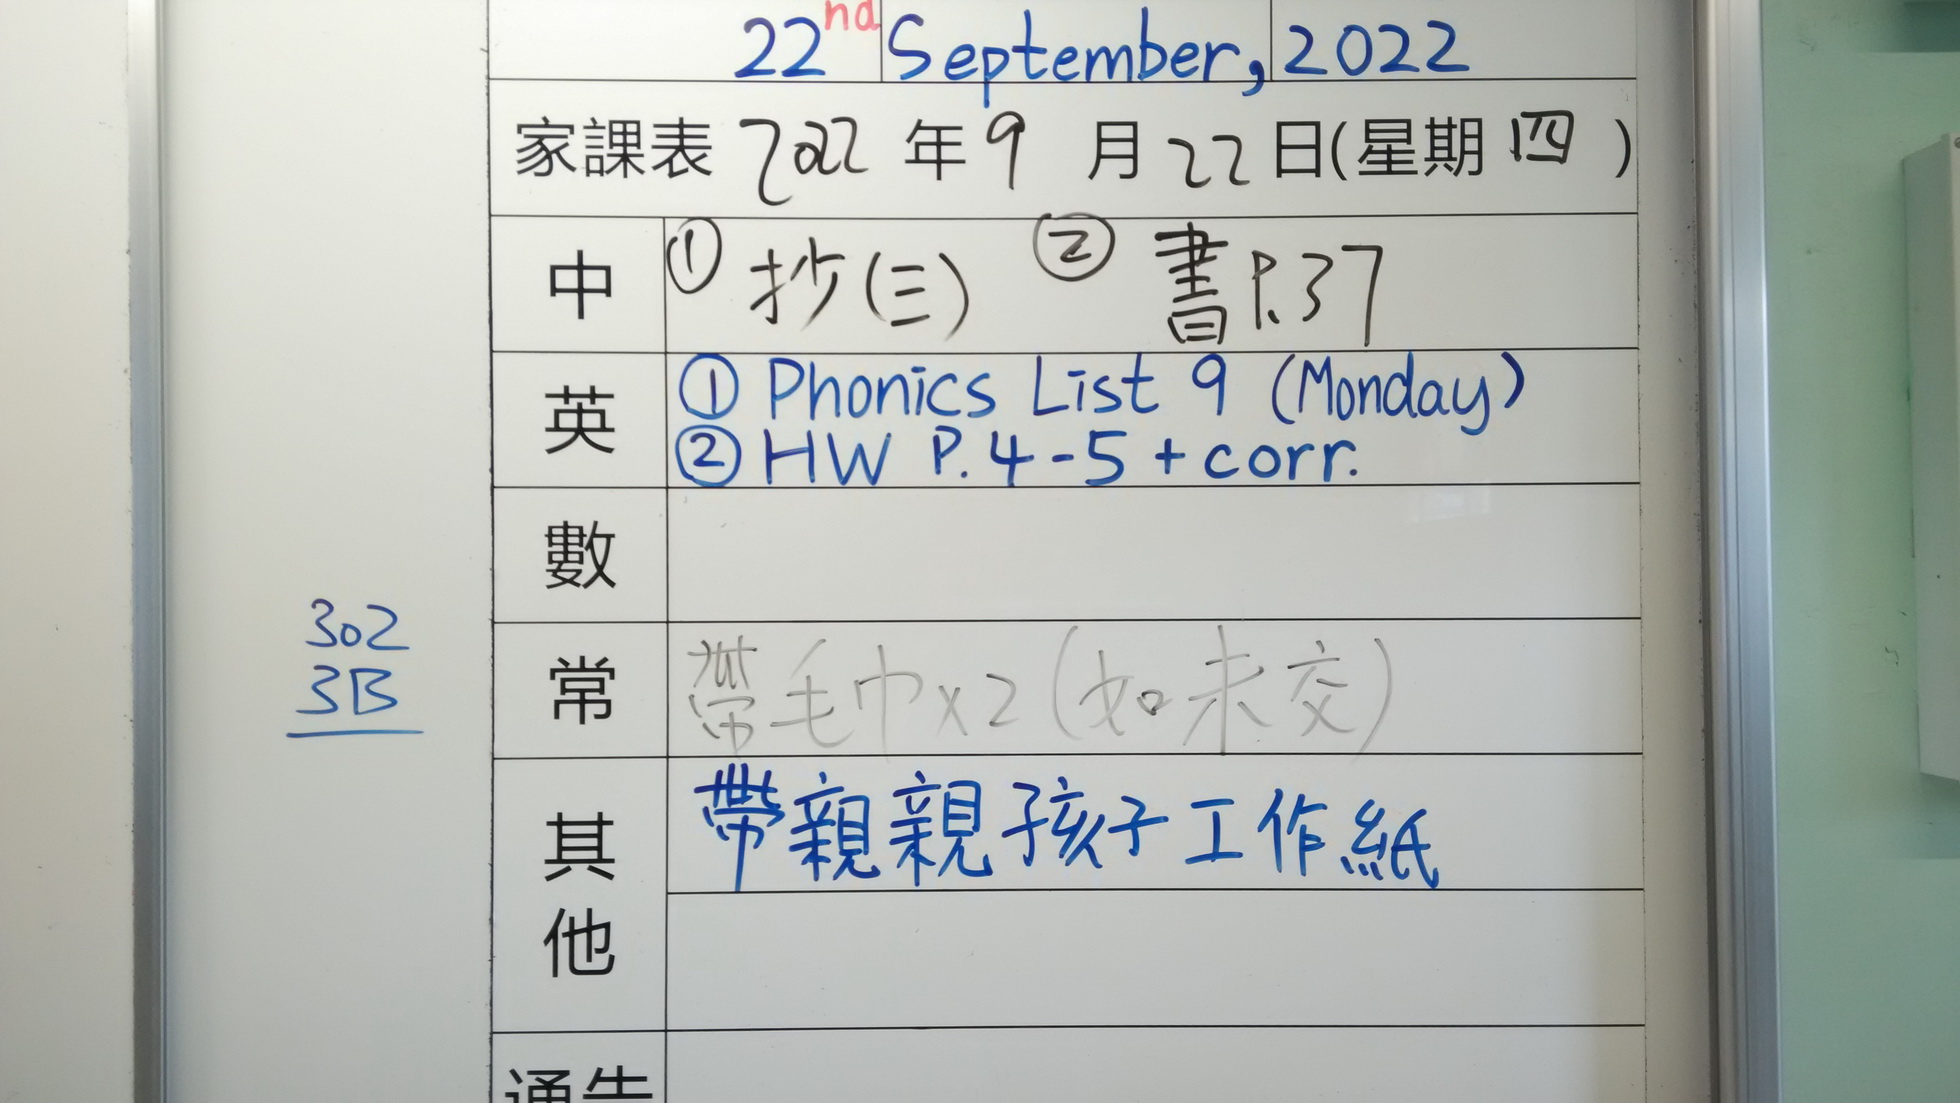 22nd September, 2022
家課表 2022 年 9 月 22 日(星期 四 )
中 ① 抄(三) ② 書P.37
英 ① Phonics List 9 (Monday)
② HW P.4-5 + corr.
數
302
3B
常 帶毛巾x2(如未交)
其他 帶親親孩子工作紙
通告